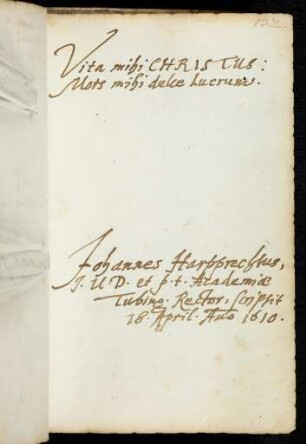 Vita mihi CHRISTUS:
Mors mihi dulce Lucrum.
Johannes Harpprechtus,
J. U. D. et p. t. Academiæ
Tubing. Rector, scripsit
18. April. Año 1610.